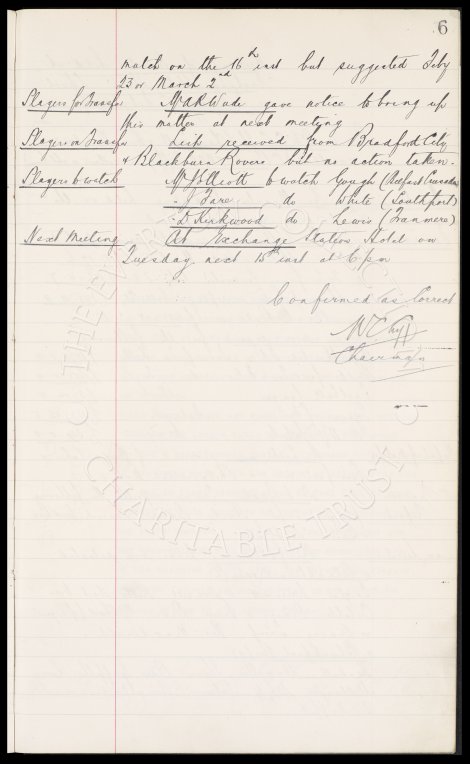 6
match on the 16th inst but suggested Feby
23 or March 2nd
Players for Transfer Mr A R Wade gave notice to bring up
this matter at next meeting
Players on Transfer Lists received from Bradford City
& Blackburn Rovers but no action taken.
Players to watch Mr Elliott to watch Gough (Belfast Crusaders)
" J. Fare do White (Southport)
" D. Kirkwood do Lewis (Tranmere)
Next Meeting At Exchange Station Hotel on
Tuesday next 15th inst at 6 pm
Confirmed as Correct
W C
Chairman
THE EVERTON
CHARITABLE TRUST